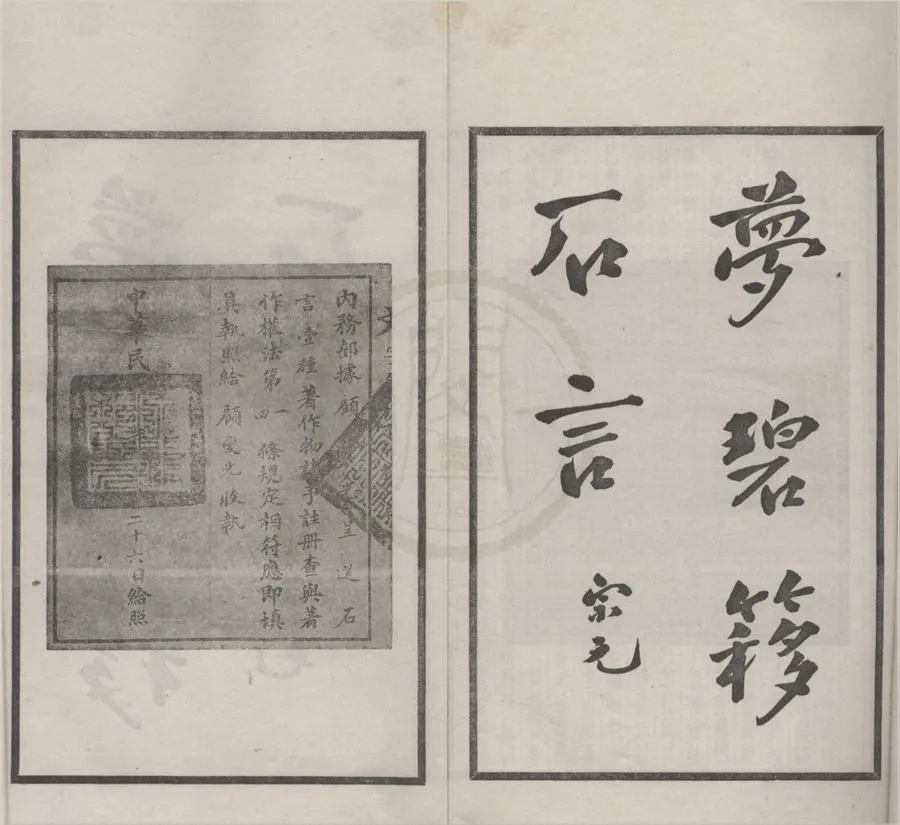 夢碧簃
石言 宗元
内務部據顧 光呈送石
言壹種著作物請予註冊查與著
作權法第一四條規定相符應即填
具執照給顧燮光收執
中華民 二十六日給照